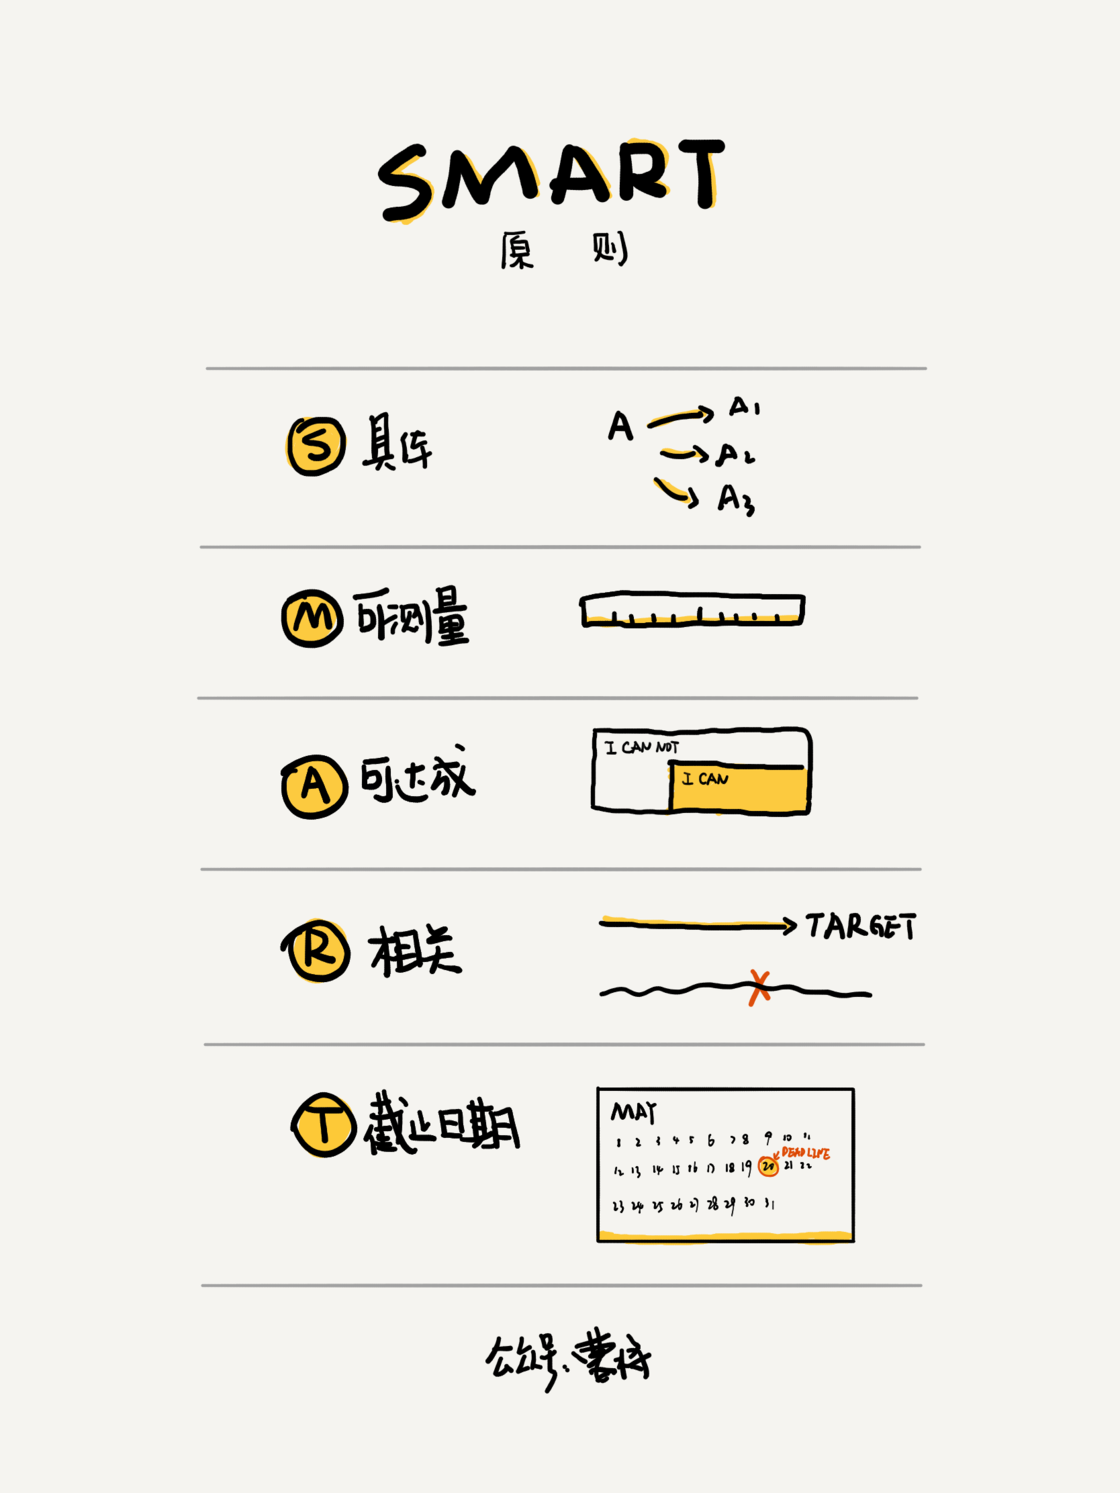 SMART
原则
S 具体
A
A1
A2
A3
M 可测量
A 可达成
I CAN NOT
I CAN
R 相关
TARGET
T 截止日期
MAY
1 2 3 4 5 6 7 8 9 10 11
DEADLINE
12 13 14 15 16 17 18 19 20 21 22
23 24 25 26 27 28 29 30 31
公众号:曹将